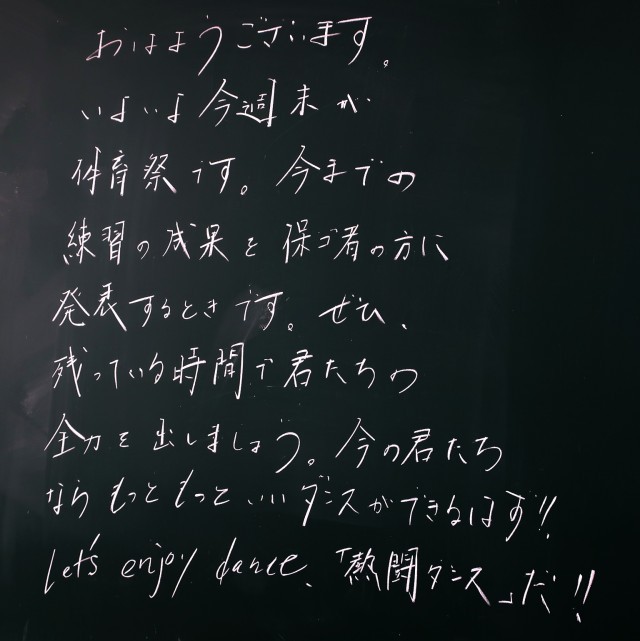 おはようございます。
いよいよ今週末が
体育祭です。今までの
練習の成果を保ゴ者の方に
発表するときです。ぜひ、
残っている時間で君たちの
全力を出しましょう。今の君たち
ならもっともっといいダンスができるはず!!
Let's enjoy dance、「熱闘ダンス」だ!!